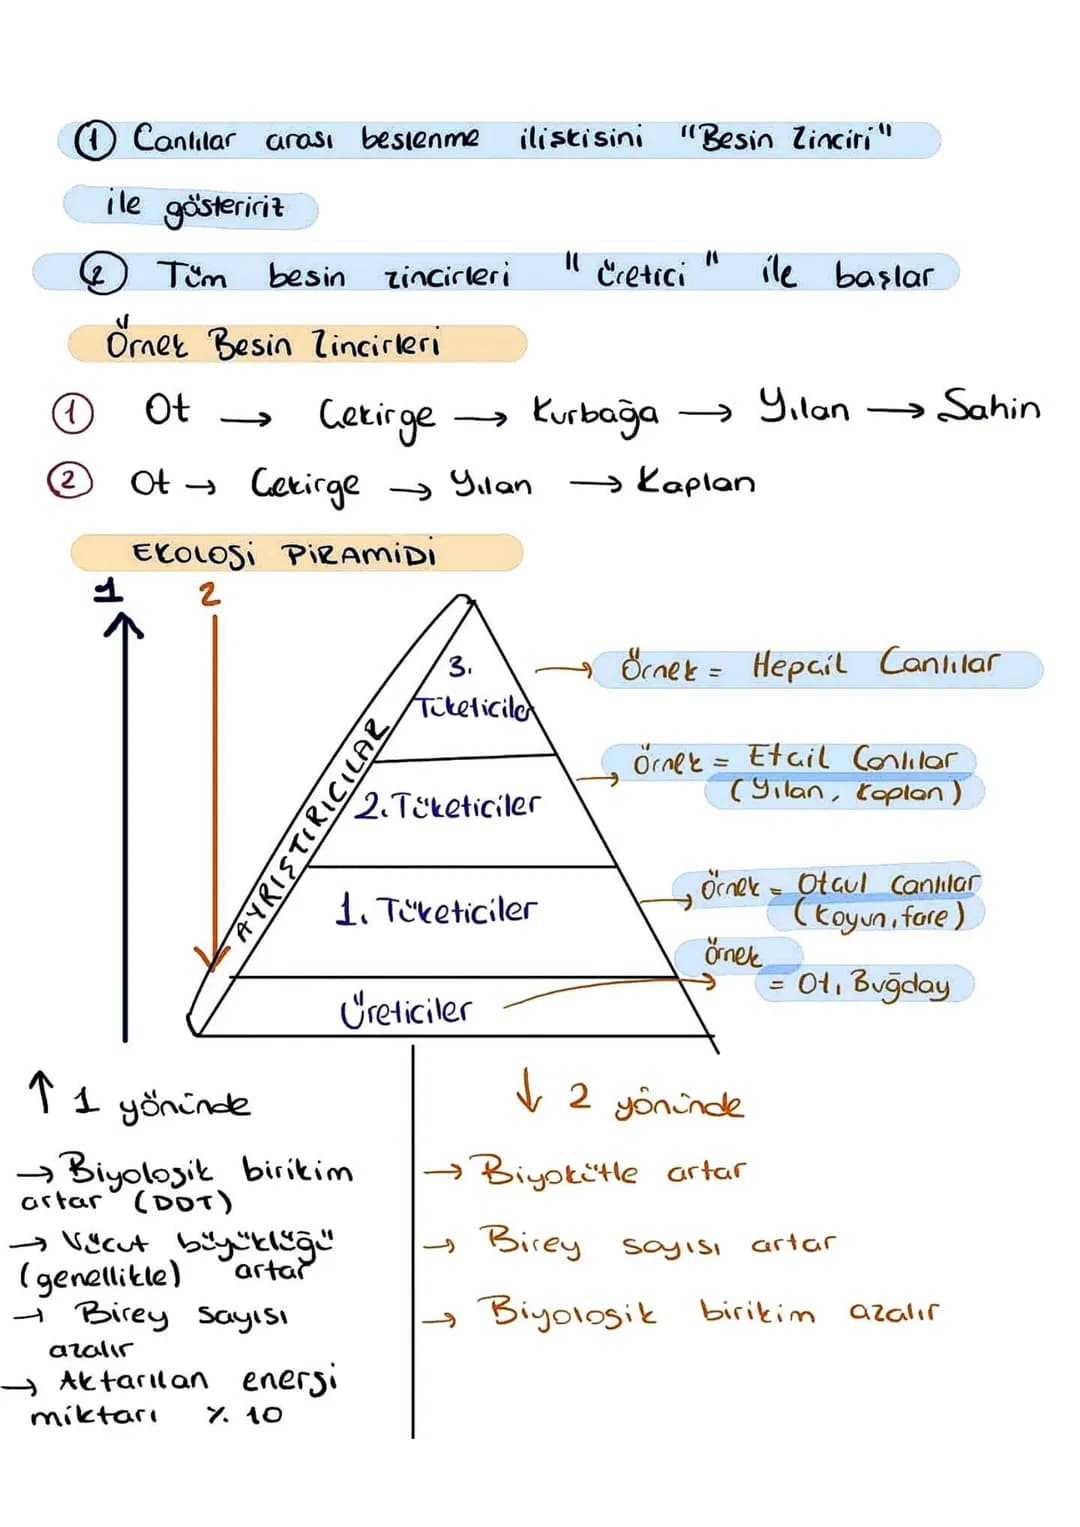 ① Canlılar arası beslenme ilişkisini "Besin Zinciri"
ile gösteririz
② Tüm besin zincirleri "üretici" ile başlar
Örnek Besin Zincirleri
① Ot → Çekirge → Kurbağa → Yılan → Şahin
② Ot → Çekirge → Yılan → Kaplan
EKOLOJİ PİRAMİDİ
1 2
3.
Tüketiciler
→ Örnek = Hepçil Canlılar
2. Tüketiciler
→ Örnek = Etçil Canlılar
(Yılan, kaplan)
1. Tüketiciler
→ Örnek = Otçul Canlılar
(koyun, fare)
Üreticiler
→ Örnek
= Ot, Buğday
AYRIŞTIRICILAR
↑ 1 yönünde
→ Biyolojik birikim
artar (DDT)
→ Vücut büyüklüğü
(genellikle) artar
→ Birey sayısı
azalır
→ Aktarılan enerji
miktarı % 10
↓ 2 yönünde
→ Biyokütle artar
→ Birey sayısı artar
→ Biyolojik birikim azalır